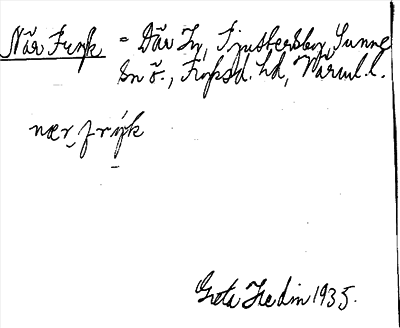 När Fryk - Där Ty, Gjutbersbyn, Sunne
sn ö., Fryksd. hd, Värml.l.
nær, frýk
Greta Hedin 1935.